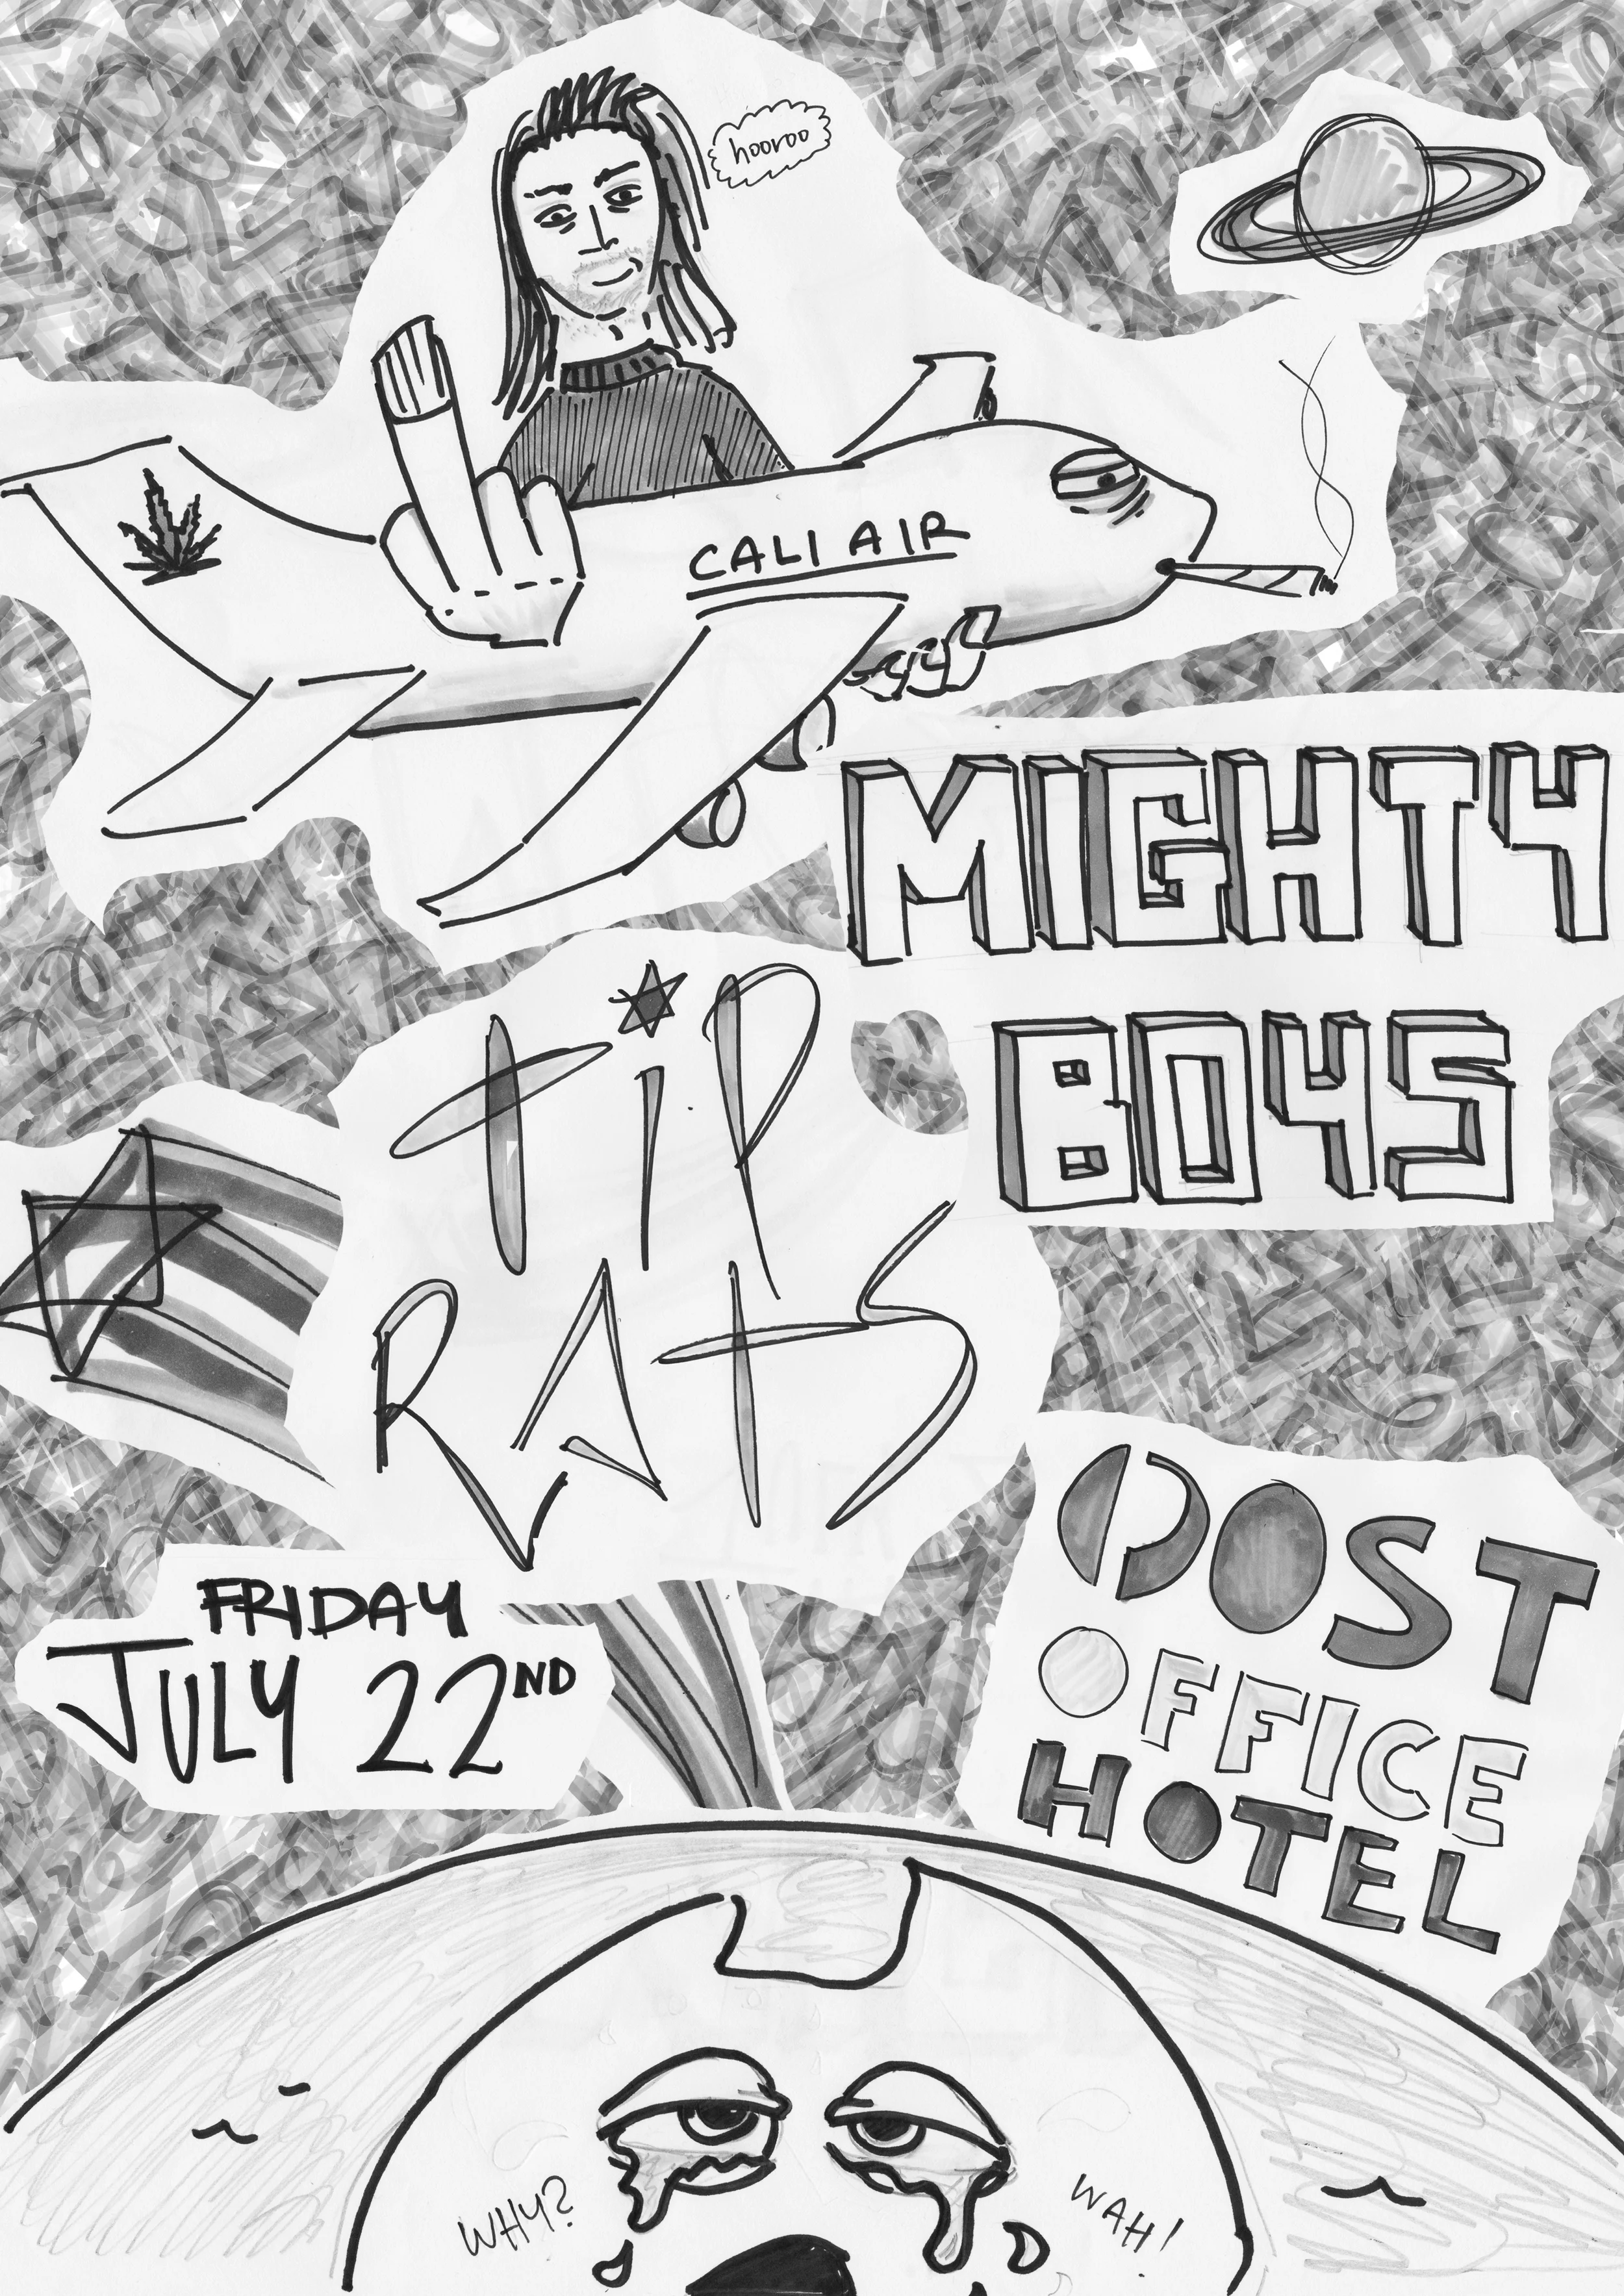 hooroo
CALI AIR
MIGHTY
BOYS
TiP
RATS
FRIDAY
JULY 22ND
POST
OFFICE
HOTEL
WHY?
WAH!